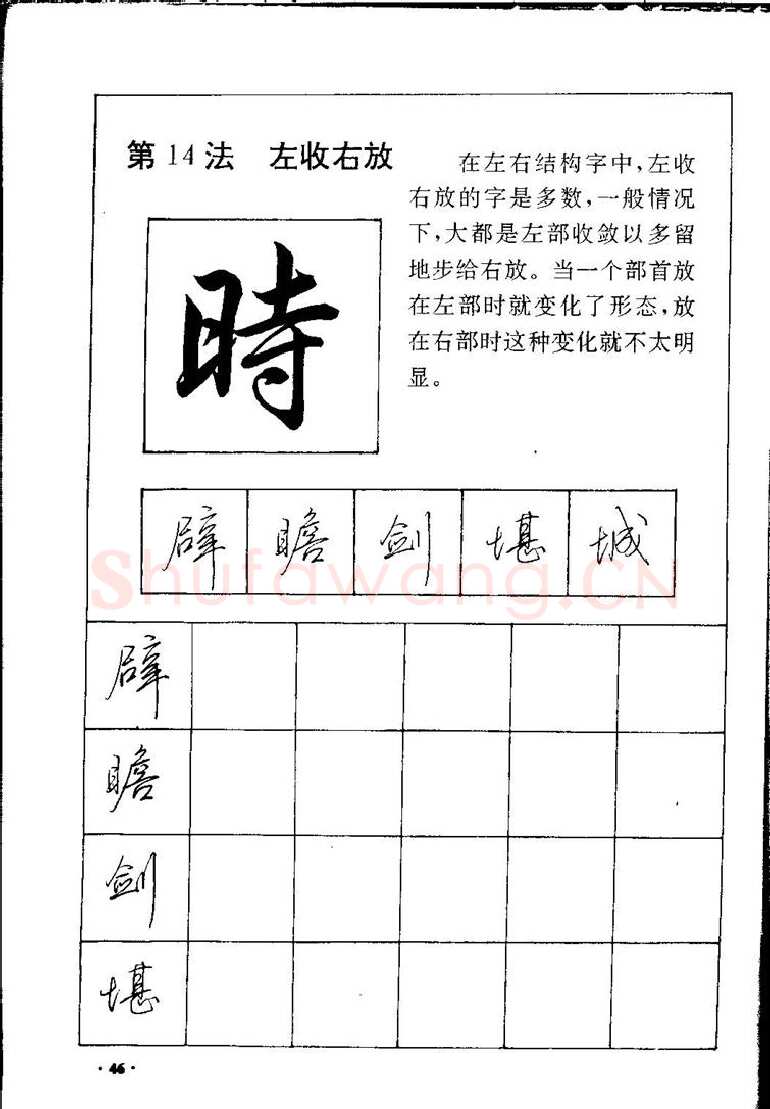 第14法 左收右放
在左右结构字中,左收
右放的字是多数,一般情况
下,大都是左部收敛以多留
地步给右放。当一个部首放
在左部时就变化了形态,放
在右部时这种变化就不太明
显。
時
辟 瞻 剑 堪 城
shufawang.CN
辟
瞻
剑
堪
·46·